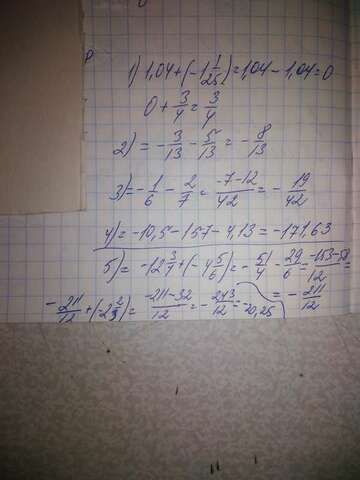 1) 1,04+(-1 1/25)=1,04-1,04=0
0+3/4=3/4
2) =-3/13-5/13=-8/13
3)=-1/6-2/7=(-7-12)/42=-19/42
4)=-10,5-157-4,13=-171,63
5)=-12 3/4+(-4 5/6)=-51/4-29/6=(-153-58)/12=
=-211/12
-211/12+(-2 2/3)=(-211-32)/12=-243/12=-20,25